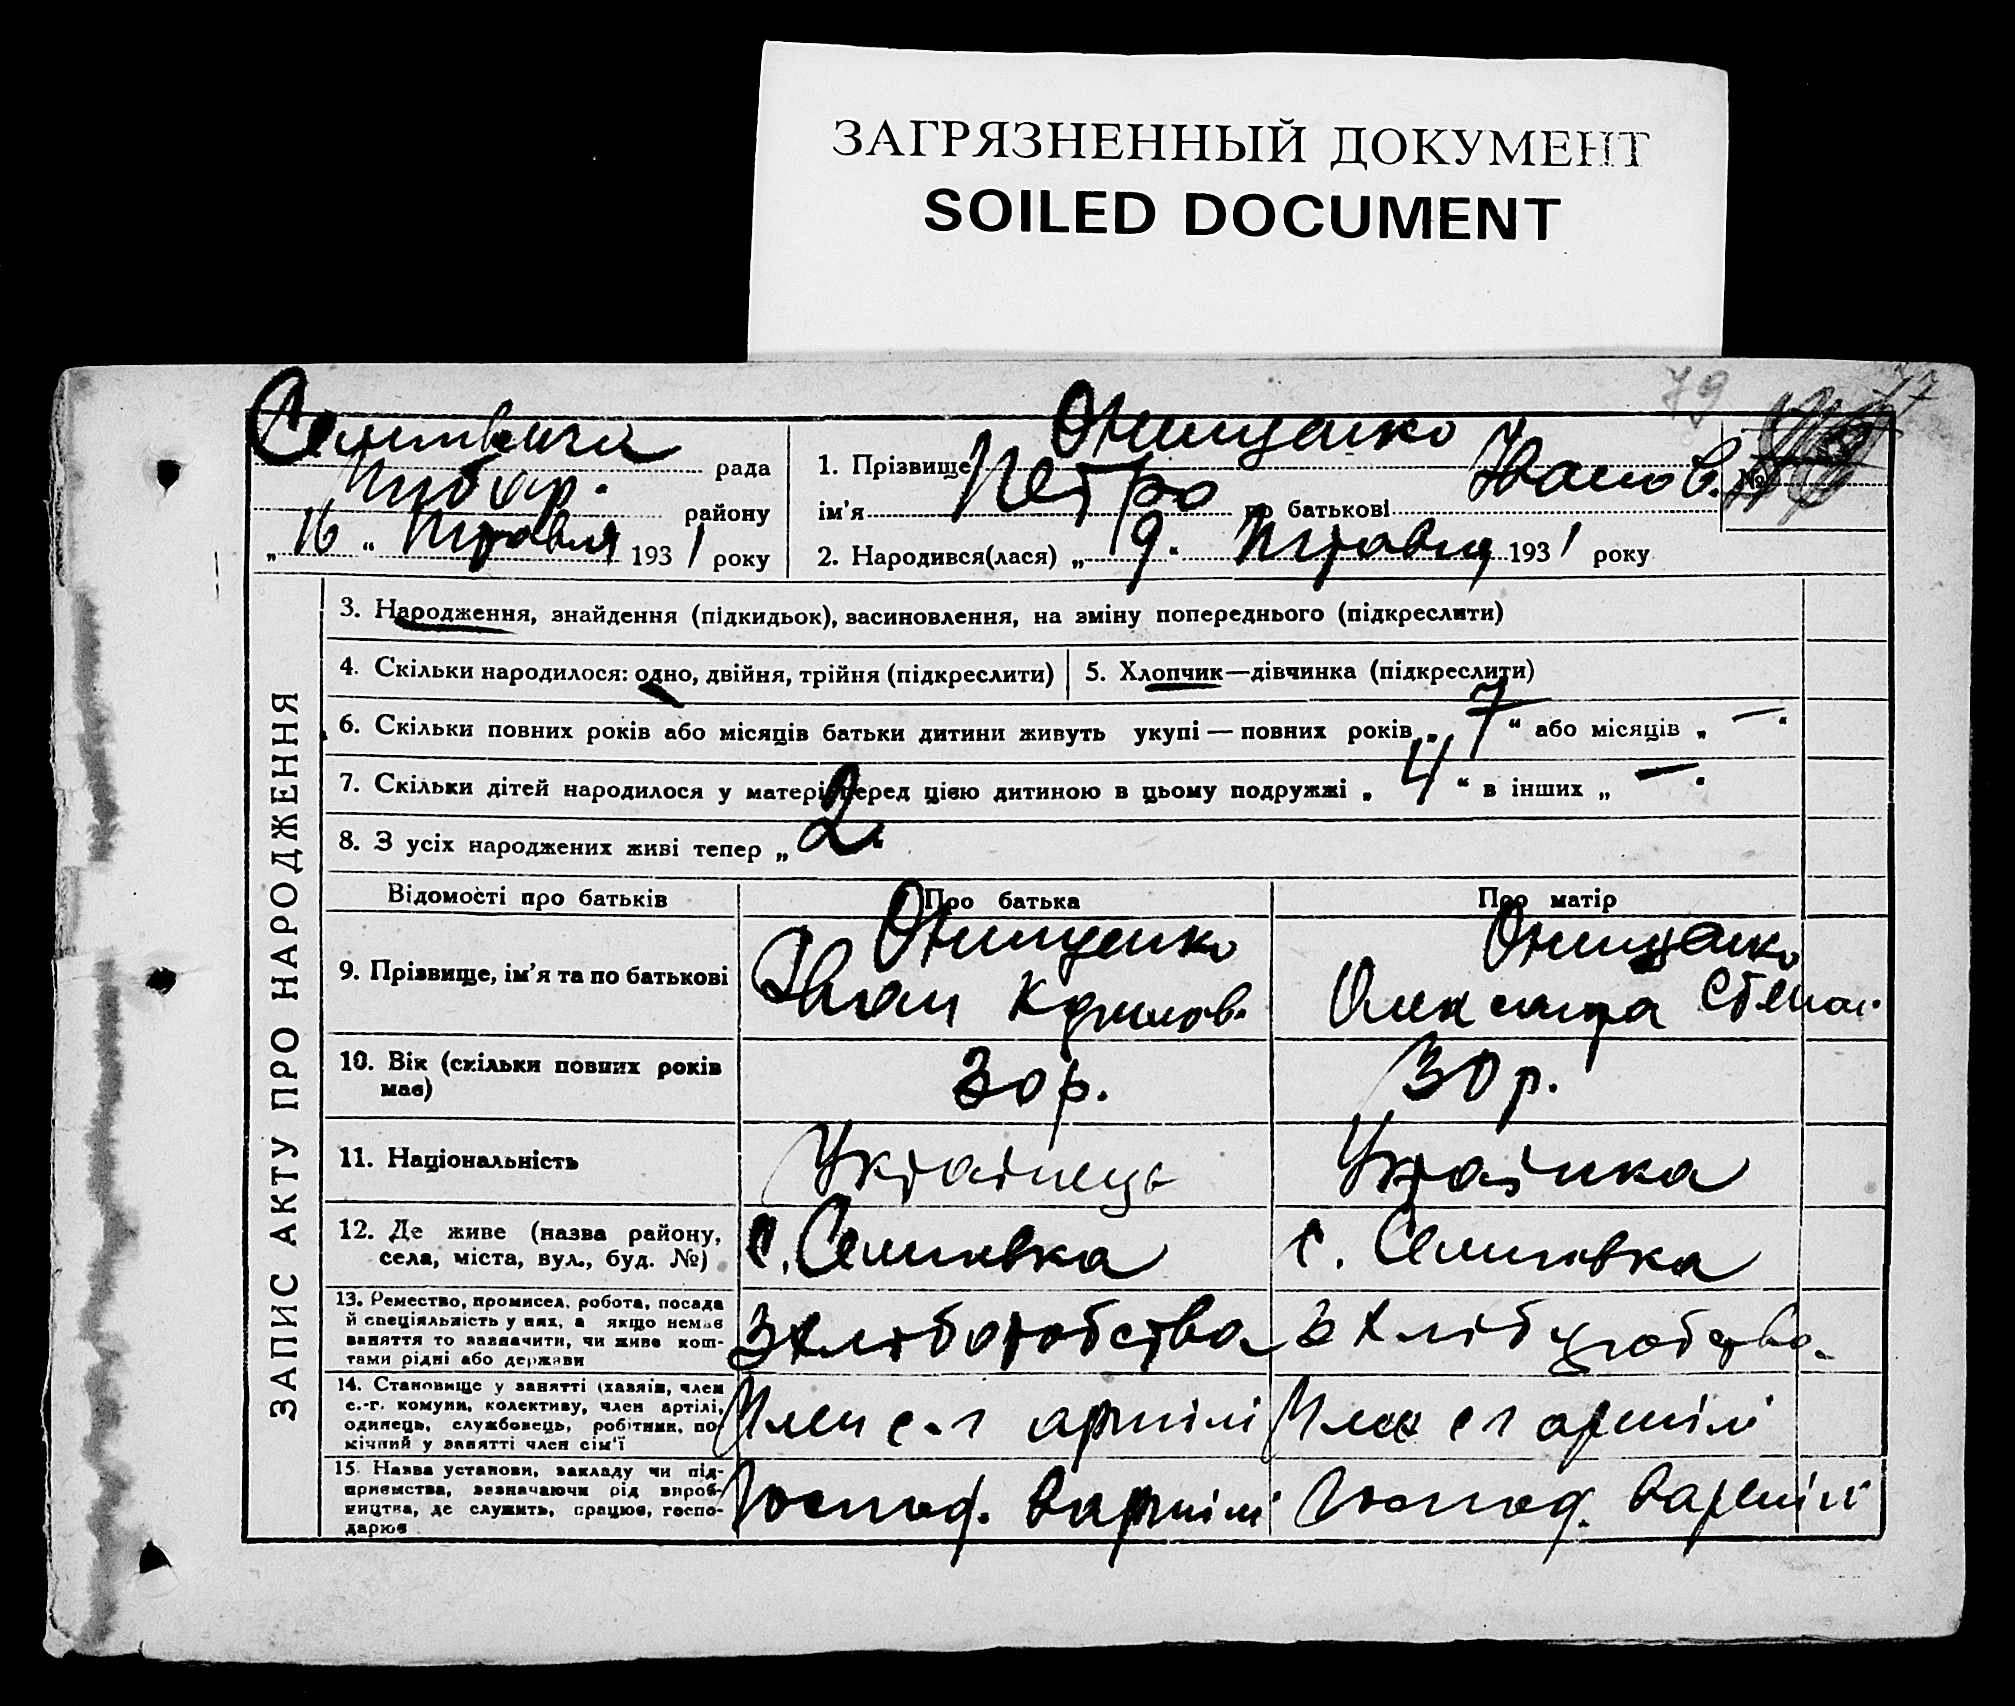 ЗАГРЯЗНЕННЫЙ ДОКУМЕНТ
SOILED DOCUMENT
79
77
рада
району
„ 16 “ Травня 1931 року
1. Прізвище Онищенко
ім'я Петро по батькові Іванов.
№
2. Народився(лася) „ 9. Травня 1931 року
ЗАПИС АКТУ ПРО НАРОДЖЕННЯ
3. Народження, знайдення (підкидьок), засиновлення, на зміну попереднього (підкреслити)
4. Скільки народилося: одно, двійня, трійня (підкреслити)
5. Хлопчик—дівчинка (підкреслити)
6. Скільки повних років або місяців батьки дитини живуть укупі — повних років „ 7 “ або місяців „ — “
7. Скільки дітей народилося у матері перед цією дитиною в цьому подружжі „ 4 “ в інших „ — “
8. З усіх народжених живі тепер „ 2.
Відомості про батьків
Про батька
Про матір
9. Прізвище, ім'я та по батькові
Онищенко
Іван
Онищенко
Олександра Степан.
10. Вік (скільки повних років має)
30 р.
30 р.
11. Національність
Українець
Українка
12. Де живе (назва району,
села, міста, вул., буд. №)
с. Семинівка
с. Семинівка
13. Ремество, промисел, робота, посада
й спеціяльність у них, а якщо немає
заняття то зазначити, чи живе кош-
тами рідні або держави
З хліборобства
З хліборобства
14. Становище у занятті (хазяїн, член
с.-г. комуни, колективу, член артілі,
одинець, службовець, робітник, по-
мічний у занятті член сім'ї
Член с-г артілі
Член с г артілі
15. Назва установи, закладу чи під-
приємства, зазначаючи рід вироб-
ництва, де служить, працює, госпо-
дарює
Господ. в артілі
Господ. в артілі